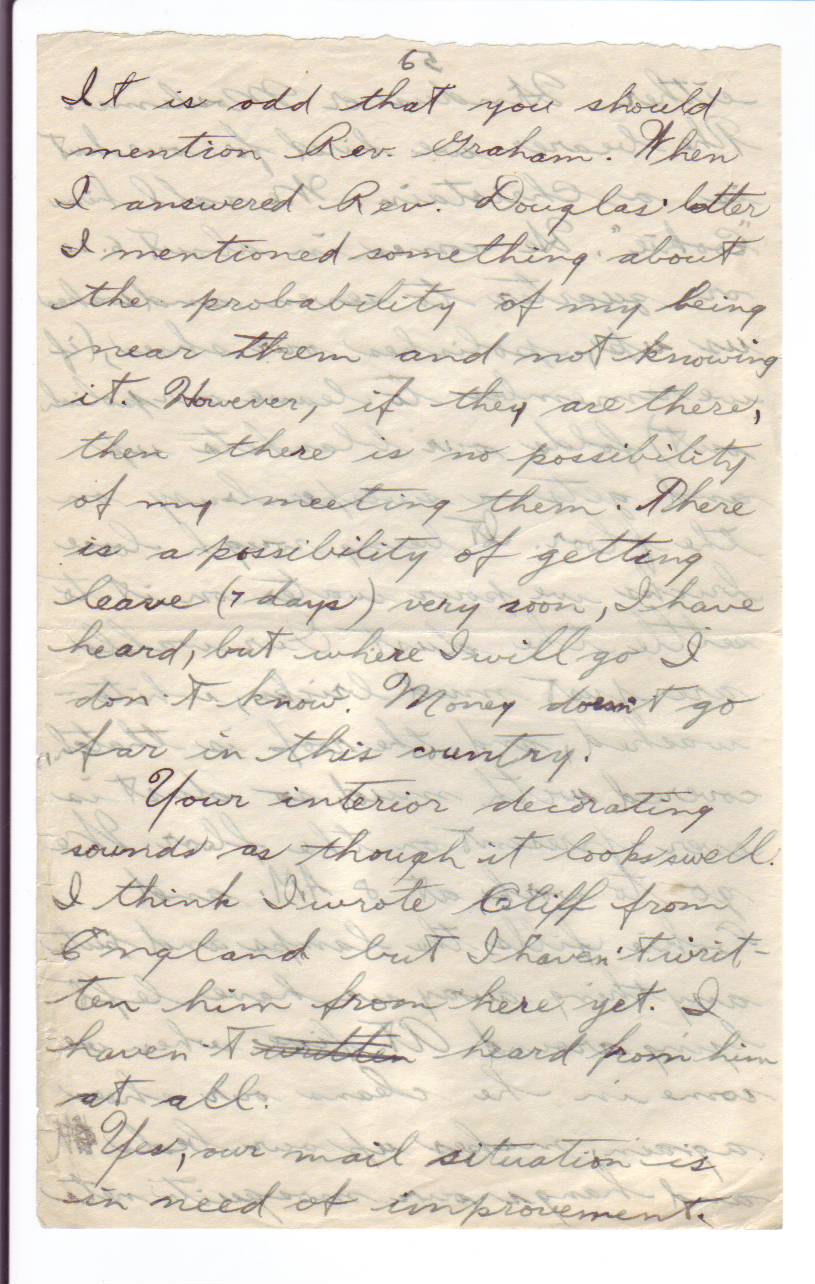 It is odd that you should
mention Rev. Graham. When
I answered Rev. Douglas' letter
I mentioned something about
the probability of my being
near them and not knowing
it. However, if they are there,
then there is no possibility
of my meeting them. There
is a possibility of getting
leave (7 days) very soon, I have
heard, but where I will go I
don't know. Money doesn't go
far in this country.
Your interior decorating
sounds as though it looks swell.
I think I wrote Cliff from
England but I haven't writ-
ten him from here yet. I
haven't written heard from him
at all.
Yes, our mail situation is
in need of improvement.